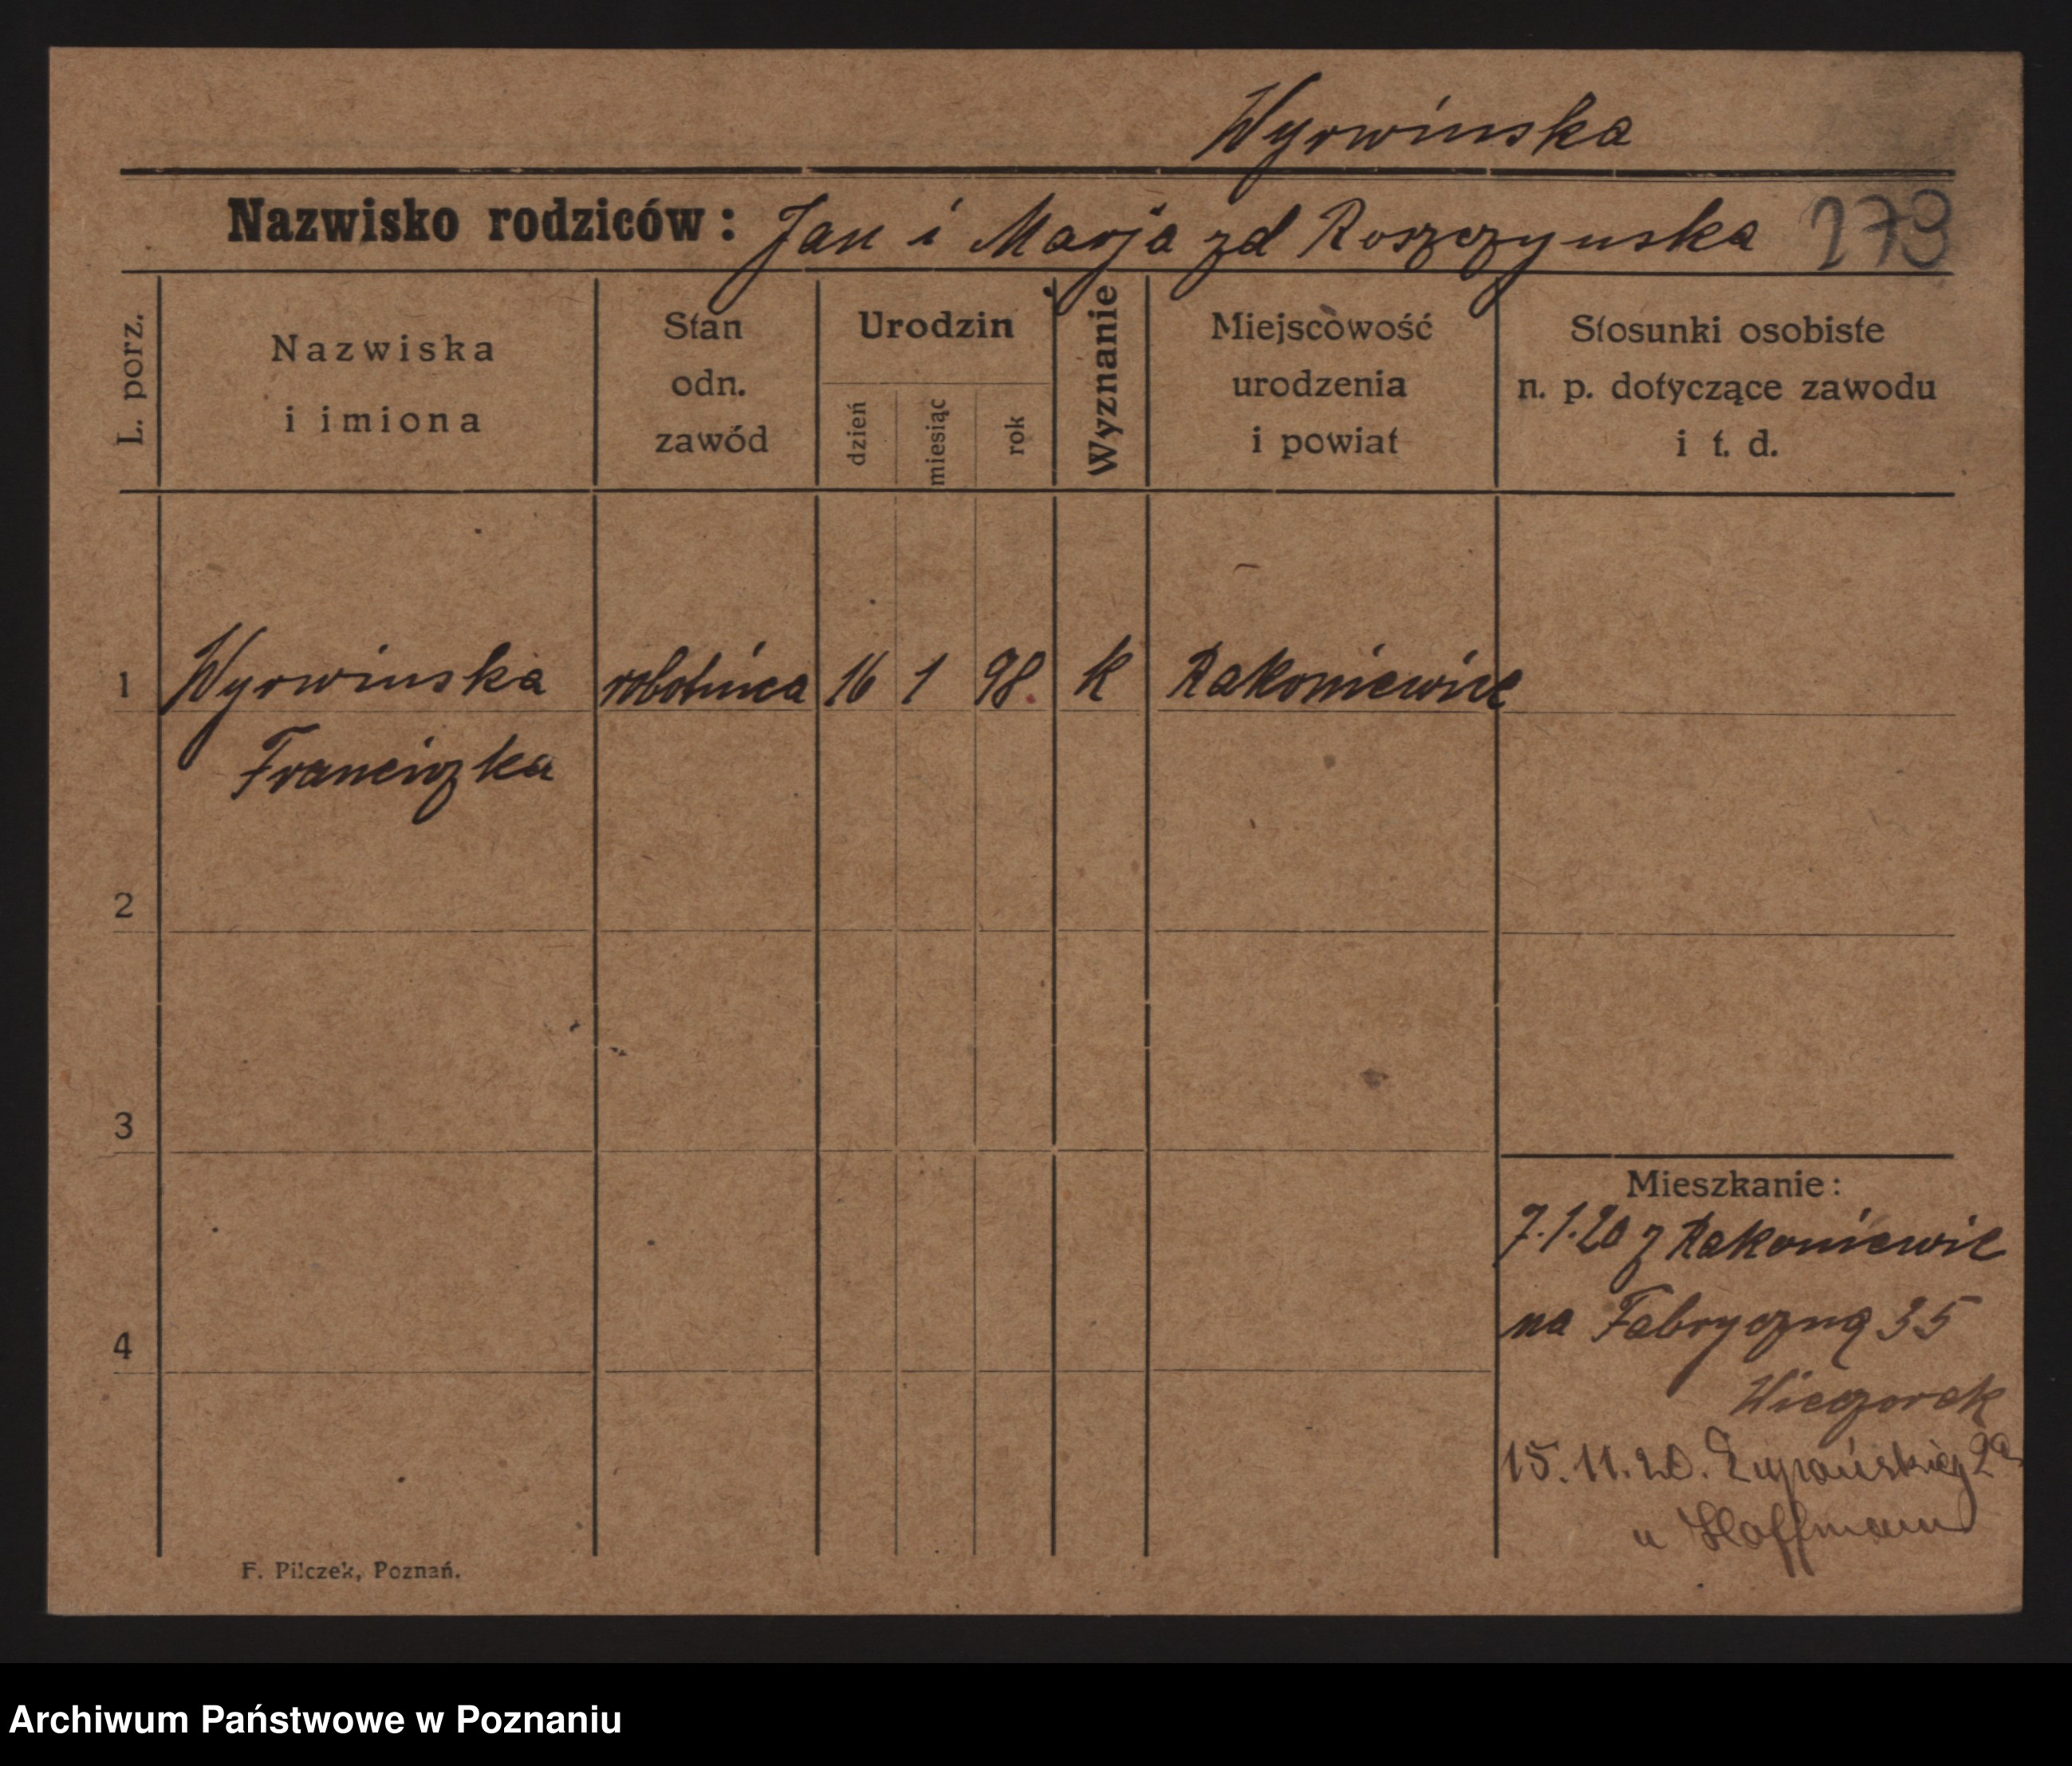 Wyrwinska
Nazwisko rodziców: Jan i Marja zd Roszczynska 273
L. porz.
Nazwiska i imiona
Stan odn. zawód
Urodzin
dzień
miesiąc
rok
Wyznanie
Miejscowość urodzenia i powiat
Stosunki osobiste n. p. dotyczące zawodu i t. d.
1 Wyrwinska robotnica 16 1 98. K Rakoniewice
Franciszka
2
3
Mieszkanie:
7.1.20 z Rakoniewic
na Fabryczną 35
4
Wieczorek
15.11.20. Żupańskiej 2a
u Hoffmann
F. Pilczek, Poznań.
Archiwum Państwowe w Poznaniu